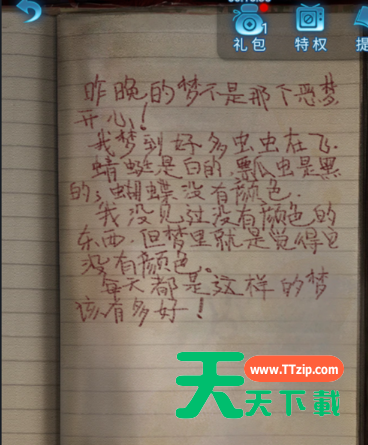 礼包
1
特权
昨晚的梦不是那个恶梦
开心!
我梦到好多虫虫在飞.
蜻蜓是白的,瓢虫是黑
的;蝴蝶没有颜色.
我没见过没有颜色的
东西.但梦里就是觉得它
没有颜色。
每天都是这样的梦
该有多好!
www.TTzip.com
天天下載